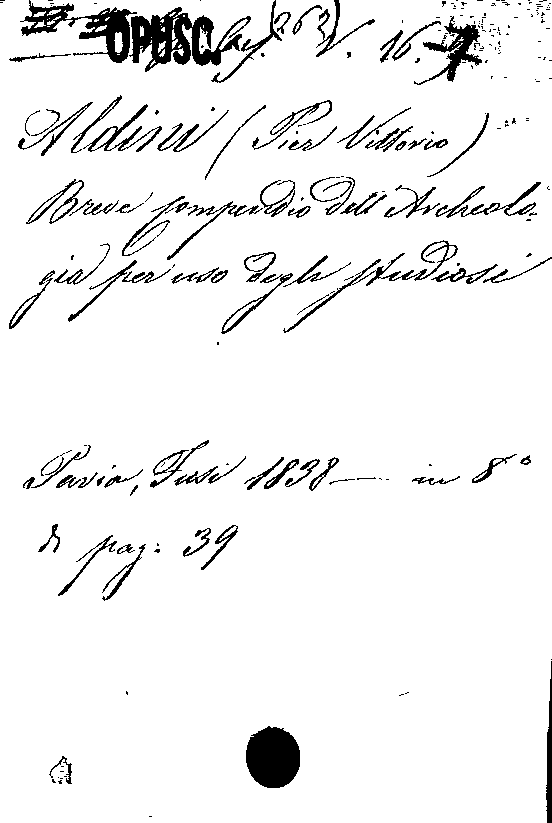 OPUSC. (263) V. 16. 7
Aldini (Pier Vittorio)
Breve compendio dell'Archeolo-
gia per uso degli studiosi
Pavia, Fusi 1838 — in 8°
di pag: 39